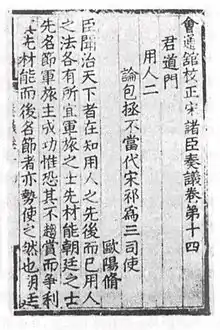 會通館校正宋諸臣奏議卷第十四
君道門
用人二
論包拯不當代宋祁為三司使
歐陽脩
臣聞治天下者在知用人之先後而已用人
之法各有所宜軍旅之士先材能朝廷之士
先名節軍旅主成功惟恐其不趨賞而爭利
其先材能而後名節者亦勢使之然也朝廷